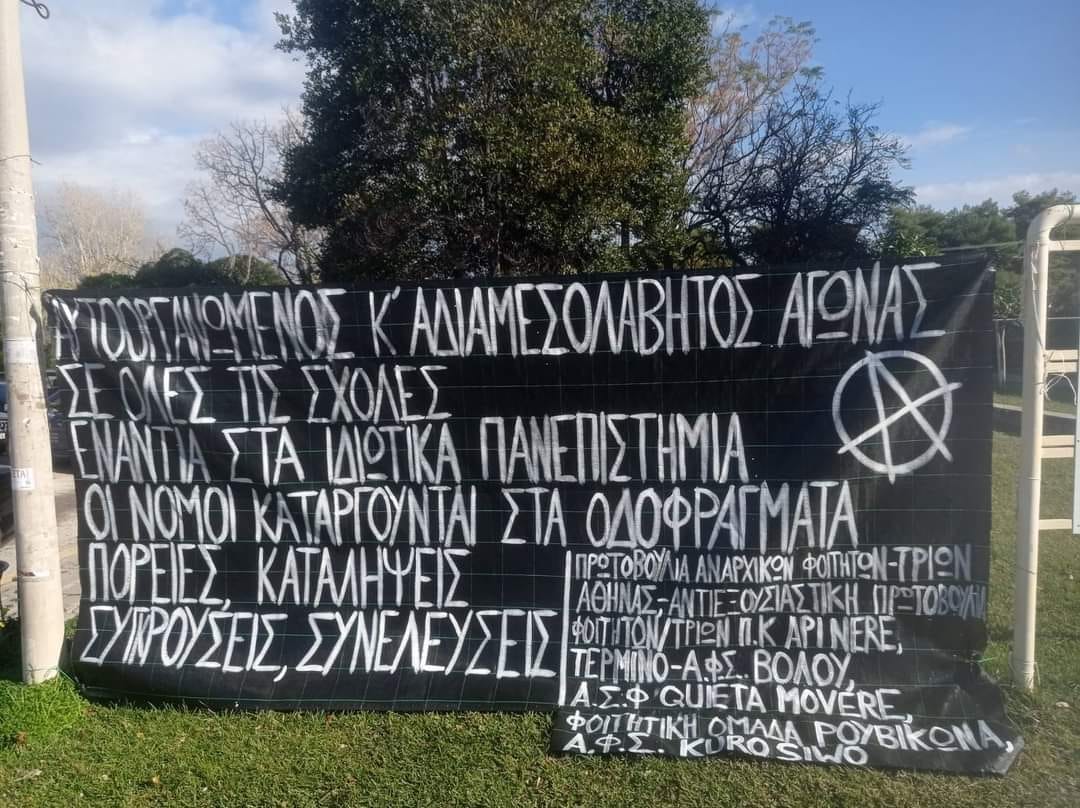 ΑΥΤΟΟΡΓΑΝΩΜΕΝΟΣ Κ' ΑΔΙΑΜΕΣΟΛΑΒΗΤΟΣ ΑΓΩΝΑΣ
ΣΕ ΟΛΕΣ ΤΙΣ ΣΧΟΛΕΣ
ΕΝΑΝΤΙΑ ΣΤΑ ΙΔΙΩΤΙΚΑ ΠΑΝΕΠΙΣΤΗΜΙΑ
ΟΙ ΝΟΜΟΙ ΚΑΤΑΡΓΟΥΝΤΑΙ ΣΤΑ ΟΔΟΦΡΑΓΜΑΤΑ
ΠΟΡΕΙΕΣ, ΚΑΤΑΛΗΨΕΙΣ
ΣΥΓΚΡΟΥΣΕΙΣ, ΣΥΝΕΛΕΥΣΕΙΣ
ΠΡΩΤΟΒΟΥΛΙΑ ΑΝΑΡΧΙΚΩΝ ΦΟΙΤΗΤΩΝ-ΤΡΙΩΝ
ΑΘΗΝΑΣ,-ΑΝΤΙΕΞΟΥΣΙΑΣΤΙΚΗ ΠΡΩΤΟΒΟΥΛΙ
ΦΟΙΤΗΤΩΝ/ΤΡΙΩΝ Π.Κ ΑΡΙ NERE,
ΤΕΡΜΙΝΟ-Α.Φ.Σ. ΒΟΛΟΥ,
Α.Σ.Φ QUIETA MOVERE,
ΦΟΙΤΗΤΙΚΗ ΟΜΑΔΑ ΡΟΥΒΙΚΩΝΑ,
Α.Φ.Σ. KURO SIWO